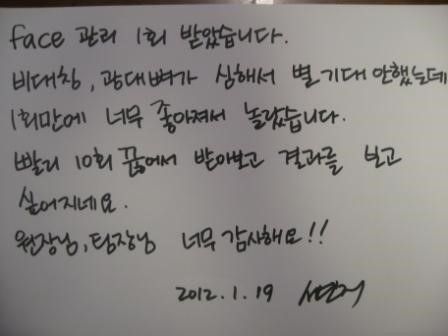 face 관리 1회 받았습니다.
비대칭, 광대뼈가 심해서 별 기대 안했는데
1회만에 너무 좋아져서 놀랐습니다.
빨리 10회 끊어서 받아보고 결과를 보고
싶어지네요.
원장님, 팀장님 너무 감사해요!!
2012.1.19